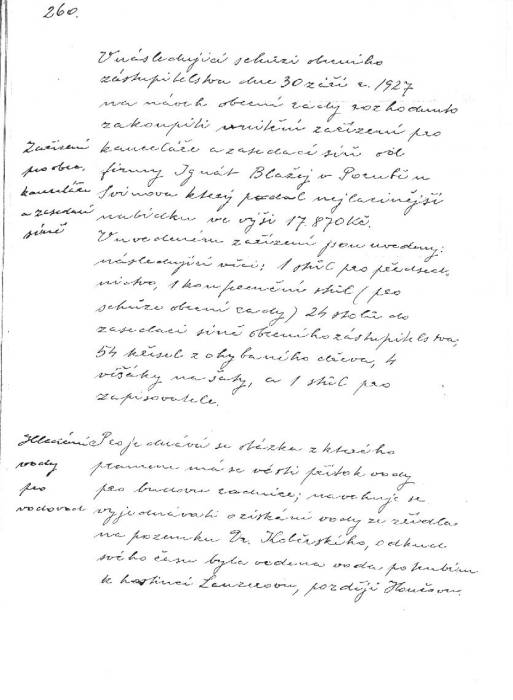 260.
V následující schůzi obecního
zastupitelstva dne 30 září r. 1927
na návrh obecní rady rozhodnuto
zakoupiti vnitřní zařízení pro
Zařízení
pro obec.
kanceláře
a zasedací
síně
kanceláře a zasedací síně od
firmy Ignát Blažej v Porubě u
Svinova který podal nejlacinější
nabídku ve výši 17.870 Kč.
V uvedeném zařízení jsou uvedeny:
následující věci; 1 stůl pro předsed-
nictvo, 1 konferenční stůl (pro
schůze obecní rady) 24 stolů do
zasedací síně obecního zástupitelstva,
54 křesel z ohýbaného dřeva, 4
věšáky na šaty, a 1 stůl pro
zapisovatele.
Hledání
vody
pro
vodovod
Projednává se otázka z kterého
pramene má se vésti přítok vody
pro budovu radnice; navrhuje se
vyjednávati o získání vody ze zřídla
na pozemku Dr., odkud
svého času byla vedena voda potrubím
k hostinci, později